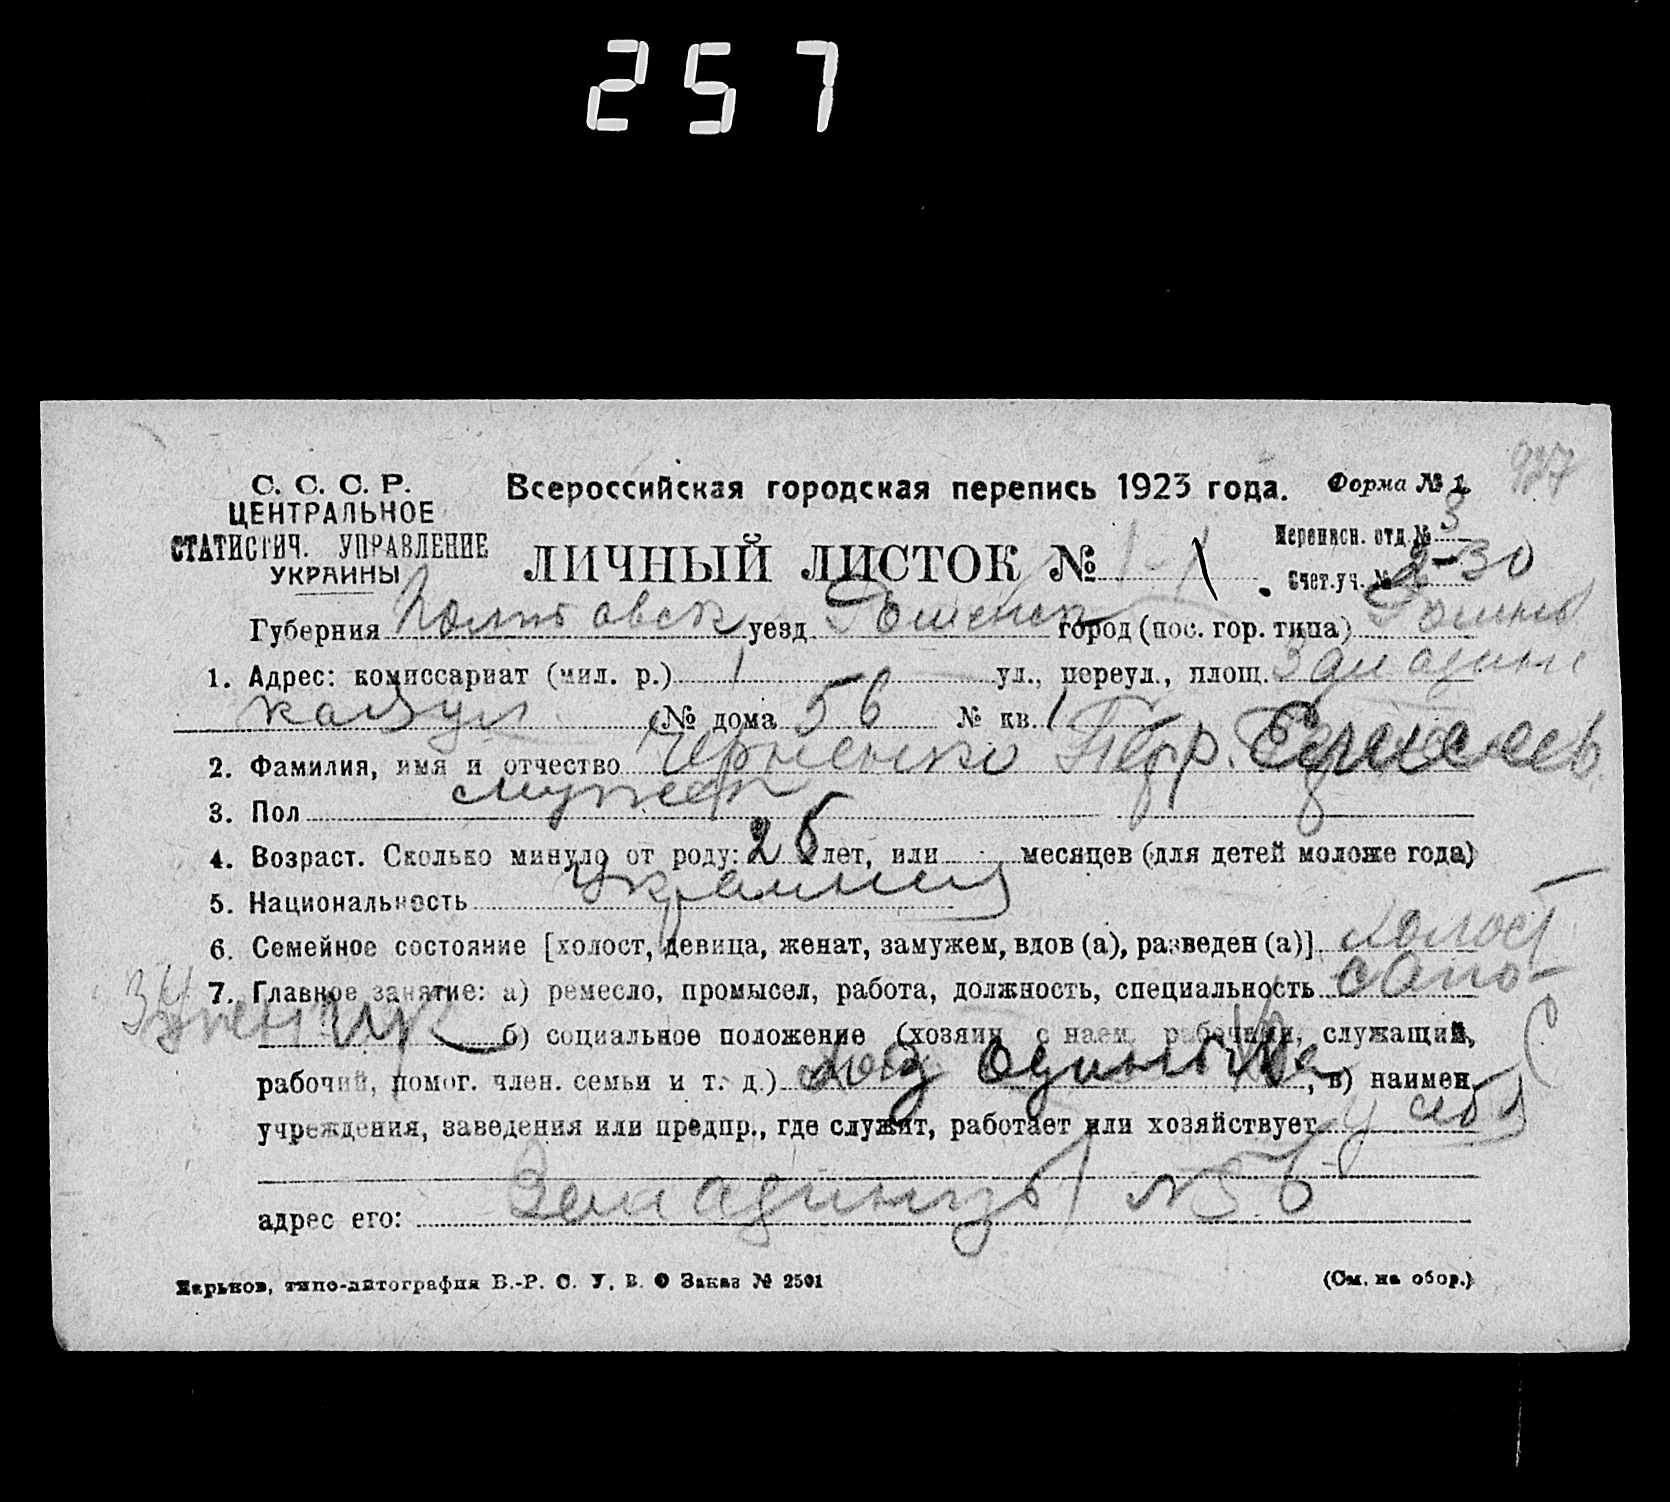 257
927
С. С. С. Р.
ЦЕНТРАЛЬНОЕ
СТАТИСТИЧ. УПРАВЛЕНИЕ
УКРАИНЫ
Всероссийская городская перепись 1923 года.
Форма № 1.
ЛИЧНЫЙ ЛИСТОК № 1
Переписн. отд № 3
Счет.уч. № 2-30
Губерния Полтавск уезд Роменск город (пос. гор. типа) Ромны
1. Адрес: комиссариат (мил. р.) 1 ул., переул., площ.
№ дома 56 № кв. 1
2. Фамилия, имя и отчество Черненко Петр.
3. Пол мужск
4. Возраст. Сколько минуло от роду: 26 лет, или месяцев (для детей моложе года)
5. Национальность украинец
6. Семейное состояние [холост, девица, женат, замужем, вдов (а), разведен (а)] холост
7. Главное занятие: а) ремесло, промысел, работа, должность, специальность сапо-
жник б) социальное положение (хозяин с наем. рабочими, служащий,
рабочий, помог. член. семьи и т. д.) хоз одиночка, в) наимен.
учреждения, заведения или предпр., где служит, работает или хозяйствует у себя
адрес его: № 56
Харьков, типо-литография В.-Р. С. У. В. О Заказ № 2501
(См. на обор.)